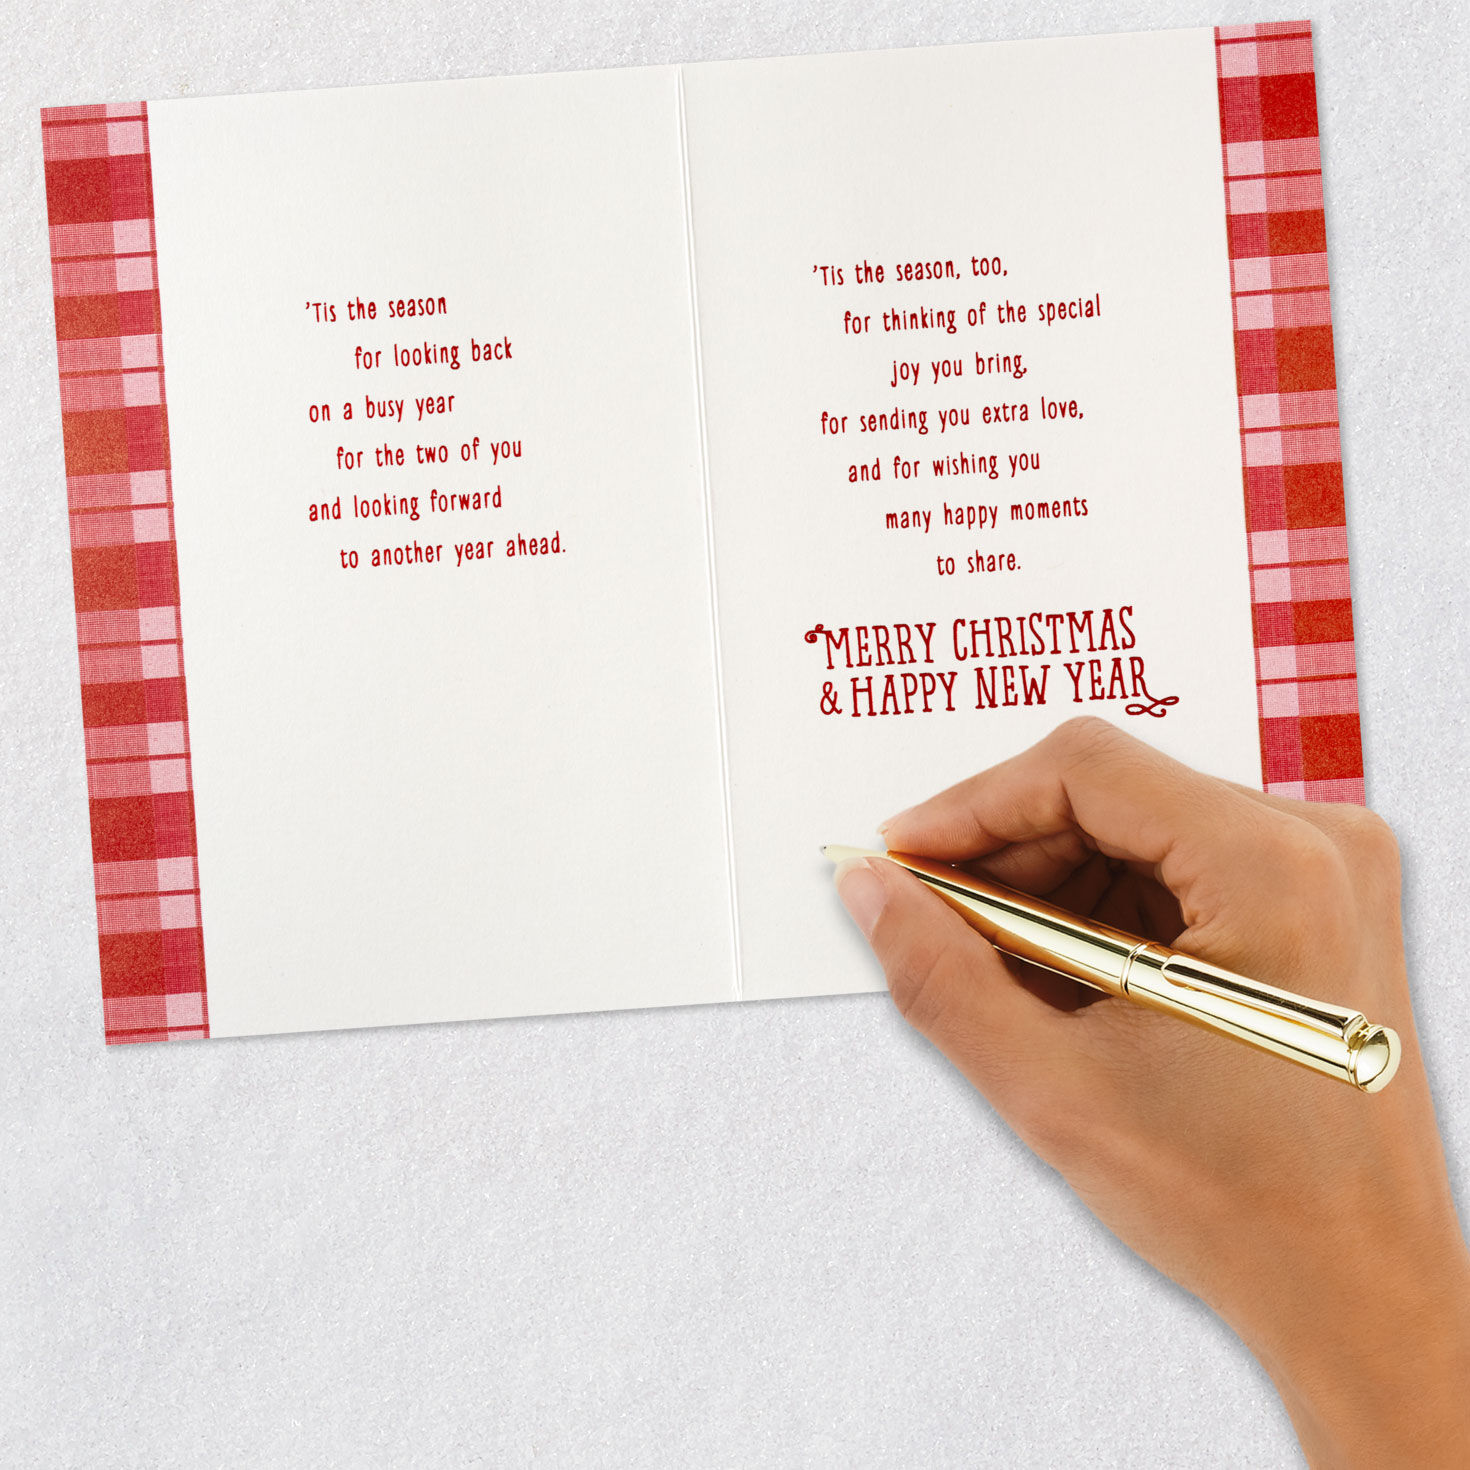 ’Tis the season
for looking back
on a busy year
for the two of you
and looking forward
to another year ahead.
’Tis the season, too,
for thinking of the special
joy you bring,
for sending you extra love,
and for wishing you
many happy moments
to share.
MERRY CHRISTMAS
& HAPPY NEW YEAR